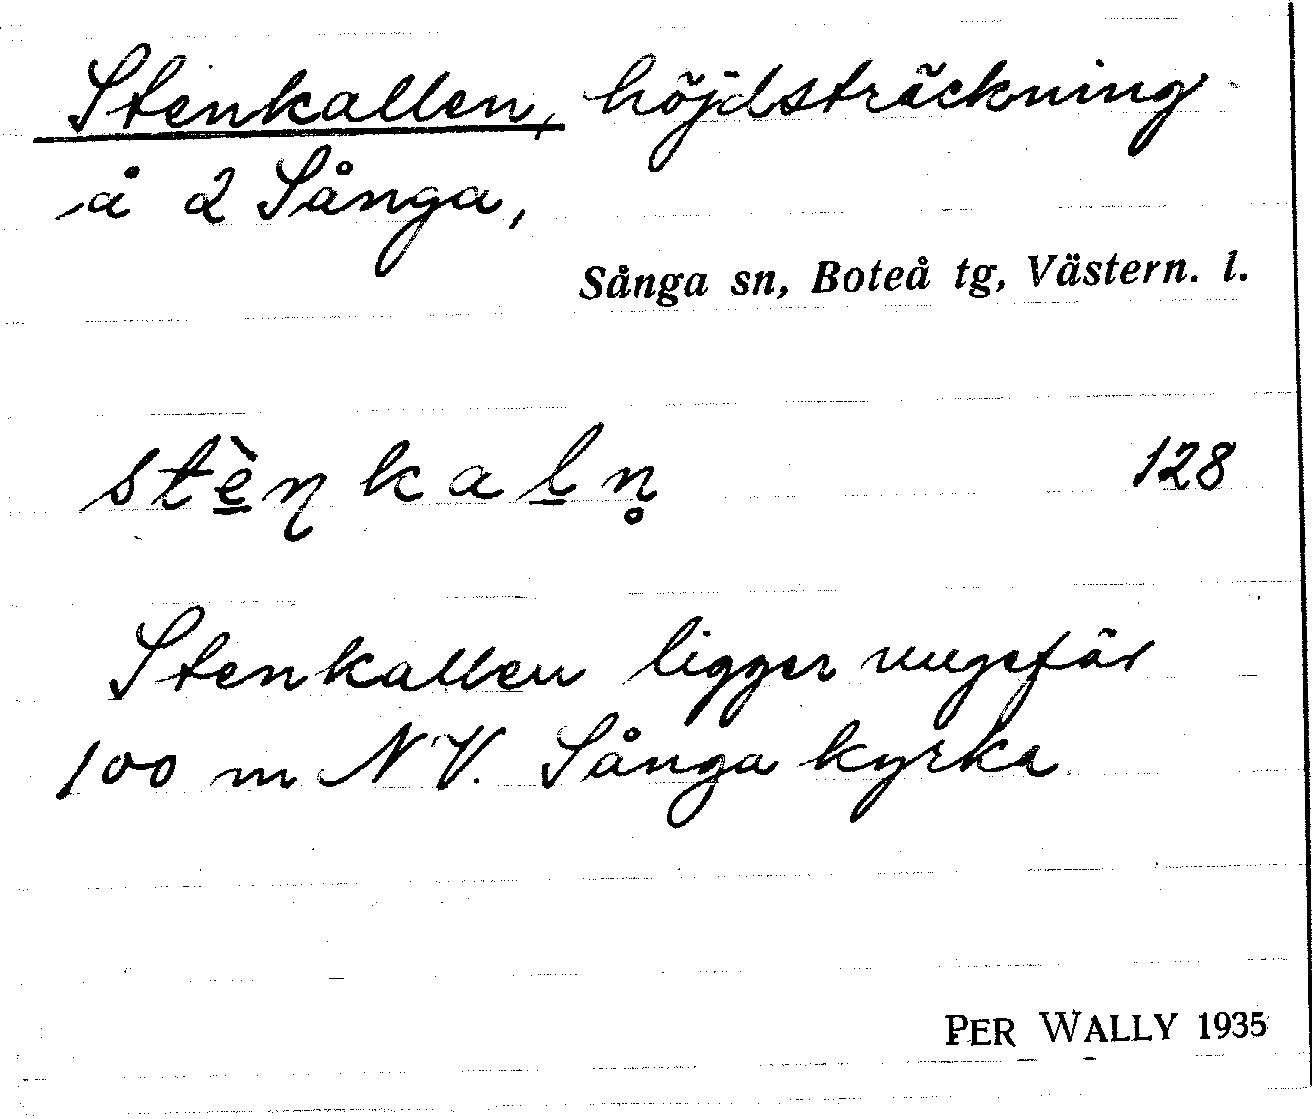 Stenkallen, höjdsträckning
å 2 Sånga,
Sånga sn, Boteå tg, Västern. l.
stè̲ŋkal̲n̥ 128
Stenkallen ligger ungefär
100 m NV. Sånga kyrka
PER WALLY 1935